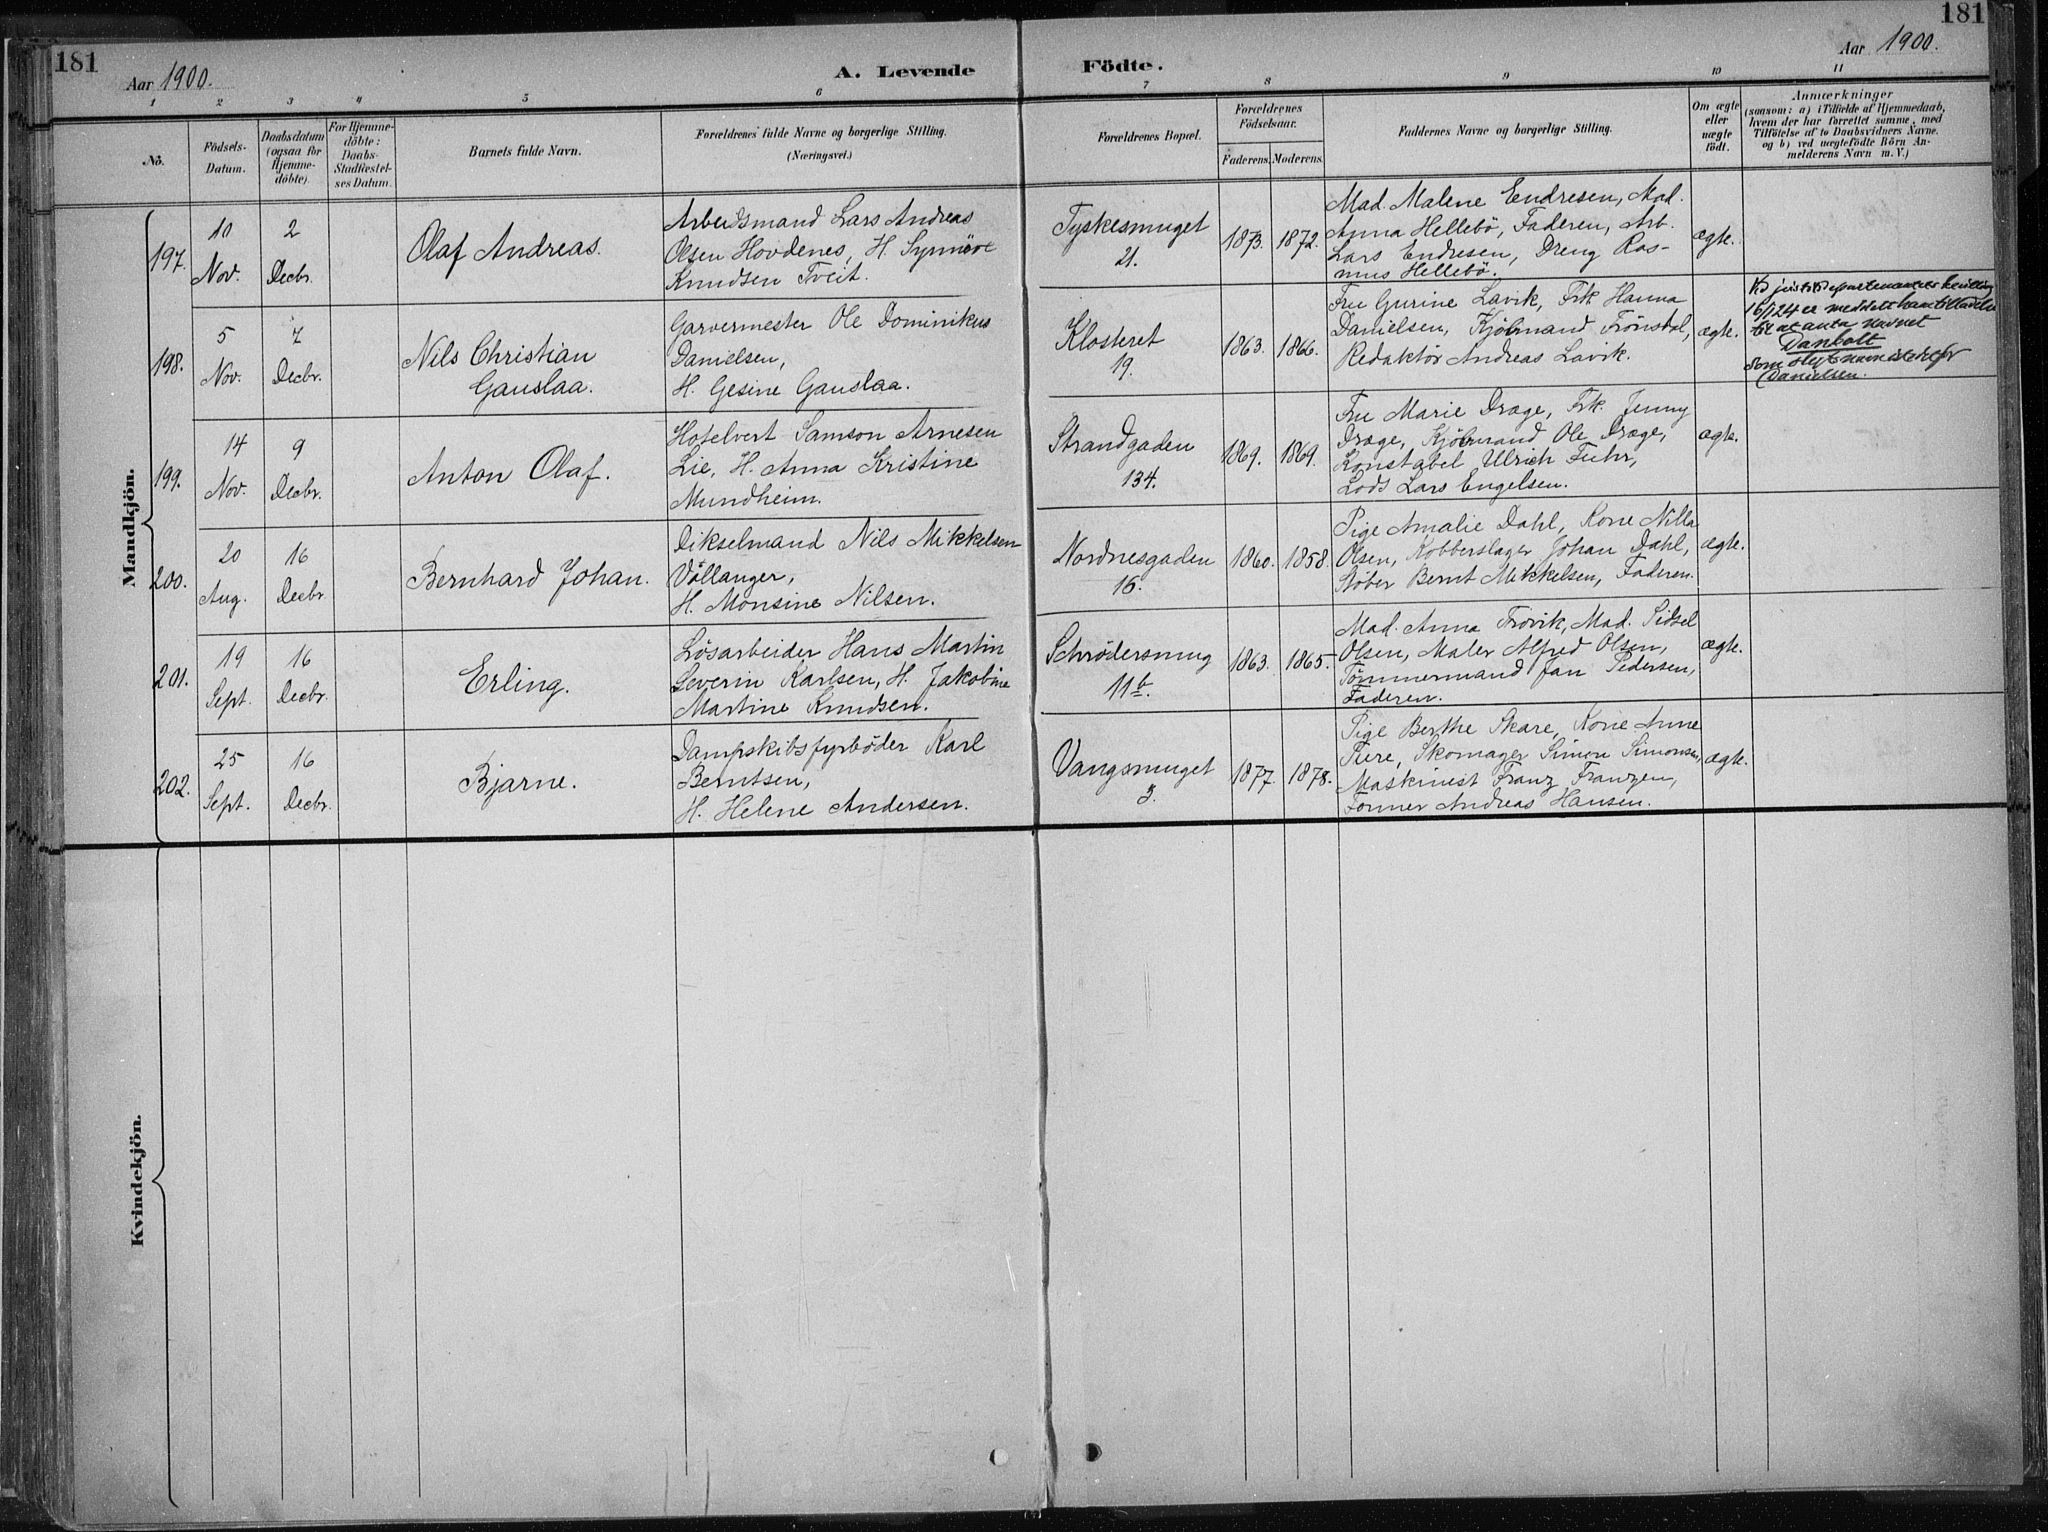 181
Aar 1900.
A. Levende
Födte.
Aar 1900.
181
1 2 3 4 5 6 7 8 9 10 11
No.
Födsels-
Datum.
Daabsdatum
(ogsaa för
Hjemme-
döbte).
For Hjemme-
döbte:
Daabs-
Stadfæstel-
ses Datum.
Barnets fulde Navn.
Forældrenes fulde Navne og borgerlige Stilling.
(Næringsvei.)
Forældrenes Bopæl.
Forældrenes
Födselsaar.
Faderens. Moderens.
Faddernes Navne og borgerlige Stilling.
Om ægte
eller
uægte
födt.
Anmærkninger
(saasom: a) i Tilfælde af Hjemmedaab,
hvem der har forrettet samme, med
Tilföielse af to Daabsvidners Navne.
og b) ved uægtefödte Börn An-
melderens Navn m. V.)
Mandkjön.
197.
10
Nov.
2
Decbr.
Olaf Andreas.
Arbeidsmand Lars Andreas
Olsen Hovdenes, H. Synnöve
Knudsen Tveit.
Tyskesmuget
21.
1873. 1872.
Mad. Malene Endresen, Mad.
Anna Hellebö, Faderen, Arb.
Lars Endresen, Dreng Ras-
mus Hellebö.
ægte.
198.
5
Nov.
7
Decbr.
Nils Christian
Gauslaa.
Garvermester Ole Dominikus
Danielsen,
H. Gesine Gauslaa.
Klosteret
19.
1863. 1866.
Fru Gurine Lavik, Frk Hanna
Danielsen, Kjøbmand Trønsdal,
Redaktør Andreas Lavik.
ægte.
16/1 24 er meddelt ham tilladelse
til at anta navnet
Danbolt
som slegtsnavn istedetfor
Danielsen.
199.
14
Nov.
9
Decbr.
Anton Olaf.
Hotelvert Samson Arnesen
Lie, H. Anna Kristine
Mundheim.
Strandgaden
134.
1869. 1869.
Fru Marie Dræge, Frk. Jenny
Dræge, Kjøbmand Ole Dræge,
Konstabel Ulrich Fuhr,
Lods Lars Engelsen.
ægte.
200.
20
Aug.
16
Decbr
Bernhard Johan.
Dikselmand Nils Mikkelsen
Vållanger,
H. Monsine Nilsen.
Nordnesgaden
16.
1860. 1858.
Pige Amalie Dahl, Kone Nilla
Olsen, Kobberslager Johan Dahl,
Støber Bernt Mikkelsen, Faderen.
ægte.
201.
19
Sept.
16
Decbr.
Erling.
Løsarbeider Hans Martin
Severin Karlsen, H. Jakobine
Martine Knudsen.
Schrødersmug
11b.
1863. 1865.
Mad. Anna Trovik, Mad. Sidsel
Olsen, Maler Alfred Olsen,
Tømmermand Jan Pedersen,
Faderen.
ægte.
202.
25
Sept.
16
Decbr.
Bjarne.
Dampskibsfyrbøder Karl
Berntsen,
H. Helene Andersen.
Vangsmuget
3.
1877. 1878.
Pige Berthe Skare, Kone Anne
Skomager Simon Simonsen,
Maskinist Franz Franzen,
Andreas Hansen.
ægte.
Kvindekjön.